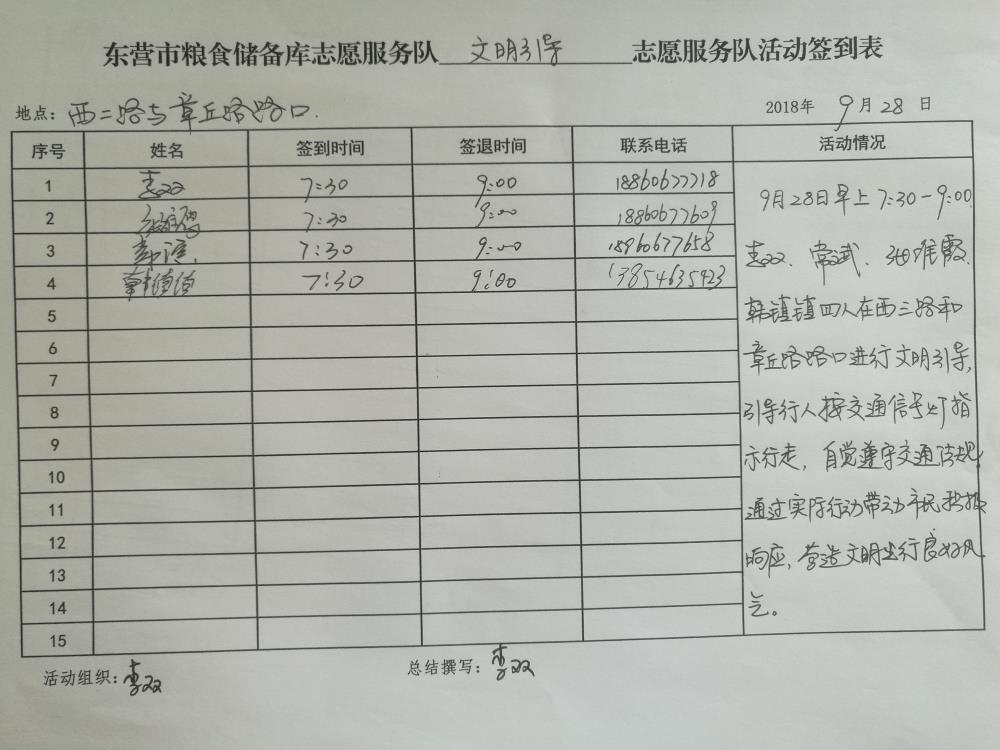 东营市粮食储备库志愿服务队 文明引导 志愿服务队活动签到表
地点：西二路与章丘路路口. 2018年 9月28日
序号 姓名 签到时间 签退时间 联系电话 活动情况
1 7:30 9:00 18860677718
2 7:30 9:00 18860677609
3 7:30 9:00 18960677658
4 7:30 9:00 13854635923
5
6
7
8
9
10
11
12
13
14
15
9月28日早上7:30-9:00
常斌、张雅霞、
韩镇镇四人在西三路和
章丘路路口进行文明引导,
引导行人按交通信号灯指
示行走，自觉遵守交通法规,
通过实际行动带动市民积极
响应，营造文明出行良好风
气。
活动组织：李双 总结撰写：李双